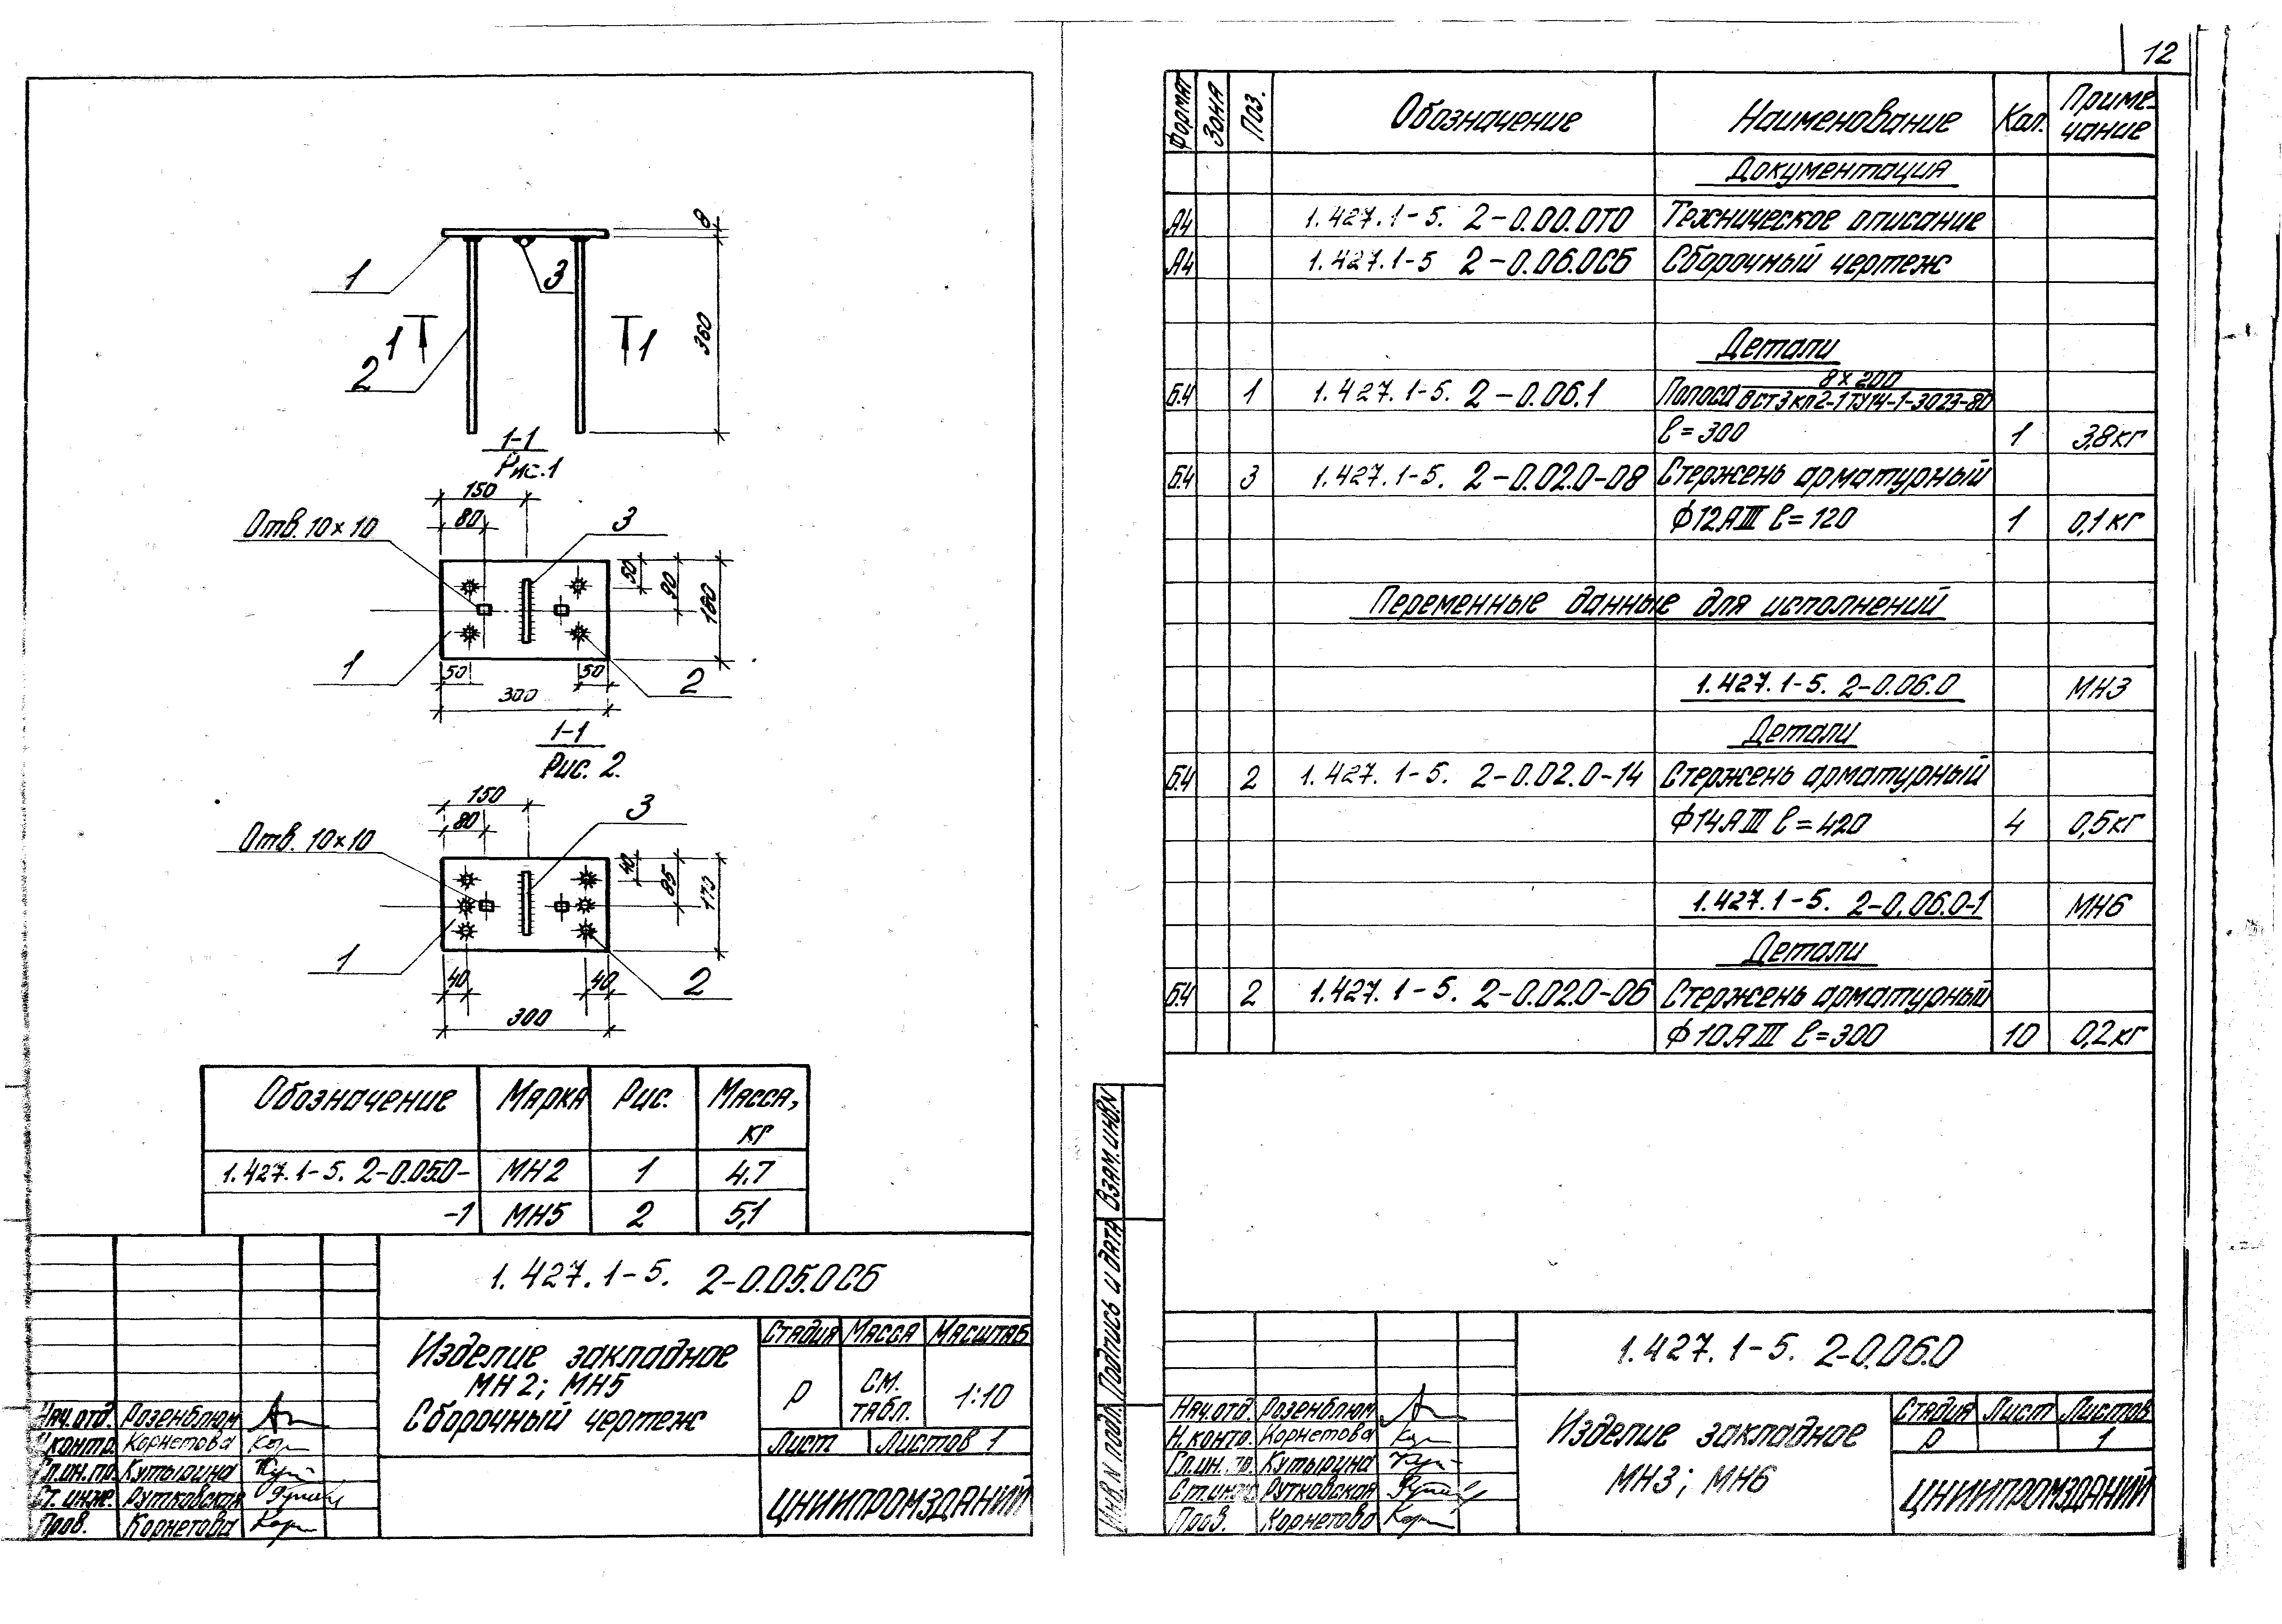 12
8
1
3
360
1
1
2
1-1
Рис.1
150
80
Отв. 10×10
3
50
90
180
1
50
50
2
300
1-1
Рис. 2.
150
80
Отв. 10×10
3
40
85
170
1
40
40
2
300
Обозначение Марка Рис. Масса, кг
1.427.1-5. 2-0.05.0- МН2 1 4,7
-1 МН5 2 5,1
1.427.1-5. 2-0.05.0СБ
Изделие закладное
МН2; МН5
Сборочный чертеж
Стадия Масса Масштаб
Р см. табл. 1:10
Лист Листов 1
ЦНИИПРОМЗДАНИЙ
Нач.отд. Розенблюм
Н.контр. Корнетова
Гл.ин.пр. Кутырина
Ст. инже. Рутковская
Пров. Корнетова
Формат Зона Поз. Обозначение Наименование Кол. Приме-
чание
Документация
А4 1.427.1-5. 2-0.00.0ТО Техническое описание
А4 1.427.1-5 2-0.06.0СБ Сборочный чертеж
Детали
Б.Ч 1 1.427.1-5. 2-0.06.1 Полоса 8×200
ВСт3кп2-1ТУ14-1-3023-80
ℓ=300 1 3,8кг
Б.Ч 3 1.427.1-5. 2-0.02.0-08 Стержень арматурный
ф12АIII ℓ=120 1 0,1кг
Переменные данные для исполнений
1.427.1-5. 2-0.06.0 МН3
Детали
Б.Ч 2 1.427.1-5. 2-0.02.0-14 Стержень арматурный
ф14АIII ℓ=420 4 0,5кг
1.427.1-5. 2-0.06.0-1 МН6
Детали
Б.Ч 2 1.427.1-5. 2-0.02.0-06 Стержень арматурный
ф10АIII ℓ=300 10 0,2кг
Взам.инв.N
Подпись и дата
Инв.N подл.
1.427.1-5. 2-0.06.0
Нач.отд. Розенблюм
Н.контр. Корнетова
Гл.ин. Кутырина
Ст.инж Рутковская
Пров. Корнетова
Изделие закладное
МН3; МН6
Стадия Лист Листов
Р 1
ЦНИИПРОМЗДАНИЙ